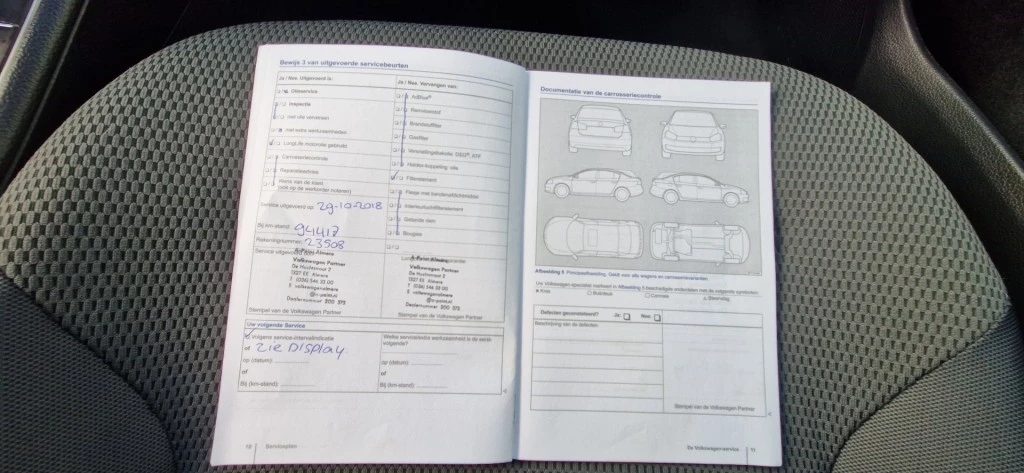 Bewijs 3 van uitgevoerde servicebeurten
Ja / Nee. Uitgevoerd is:
Olieservice
Inspectie
met olie verversen
met extra werkzaamheden
LongLife motorolie gebruikt
Carrosseriecontrole
Service uitgevoerd op: 29-10-2018
Bij km-stand: 94417
Rekeningnummer: 23508
Service uitgevoerd
Volkswagen Partner
De Huchtstraat 2
1327 EE Almere
T (036) 546 22 00
E volkswagenalmere
@a-point.nl
Dealernummer 200 375
Stempel van de Volkswagen Partner
Uw volgende Service
Volgens service-intervalindicatie
of ZIE DISPLAY
op (datum):
of
Bij (km-stand):
18 Serviceplan
Ja / Nee. Vervangen van:
AdBlue®
Remvloeistof
Brandstoffilter
Gasfilter
Versnellingsbakolie, DSG®, 6TF
Haldex-koppeling: olie
Filterelement
Flesje met bandenafdichtmiddel
Interieurluchtfilterelement
Getande riem
Bougies
Volkswagen Partner
De Huchtstraat 2
1327 EE Almere
T (036) 546 22 00
E volkswagenalmere
@a-point.nl
Dealernummer 200 375
Stempel van de Volkswagen Partner
Welke service/extra werkzaamheid is de eerst-
volgende?
op (datum):
of
Bij (km-stand):
Documentatie van de carrosseriecontrole
Afbeelding 5 Principeafbeelding. Geldt voor alle wagens en carrosserievarianten.
Uw Volkswagen-specialist markeert in Afbeelding 5 beschadigde onderdelen met de volgende symbolen:
Kras
Buil/deuk
Corrosie
Steenslag
Defecten geconstateerd? Ja: Nee:
Beschrijving van de defecten:
Stempel van de Volkswagen Partner
De Volkswagenservice 19